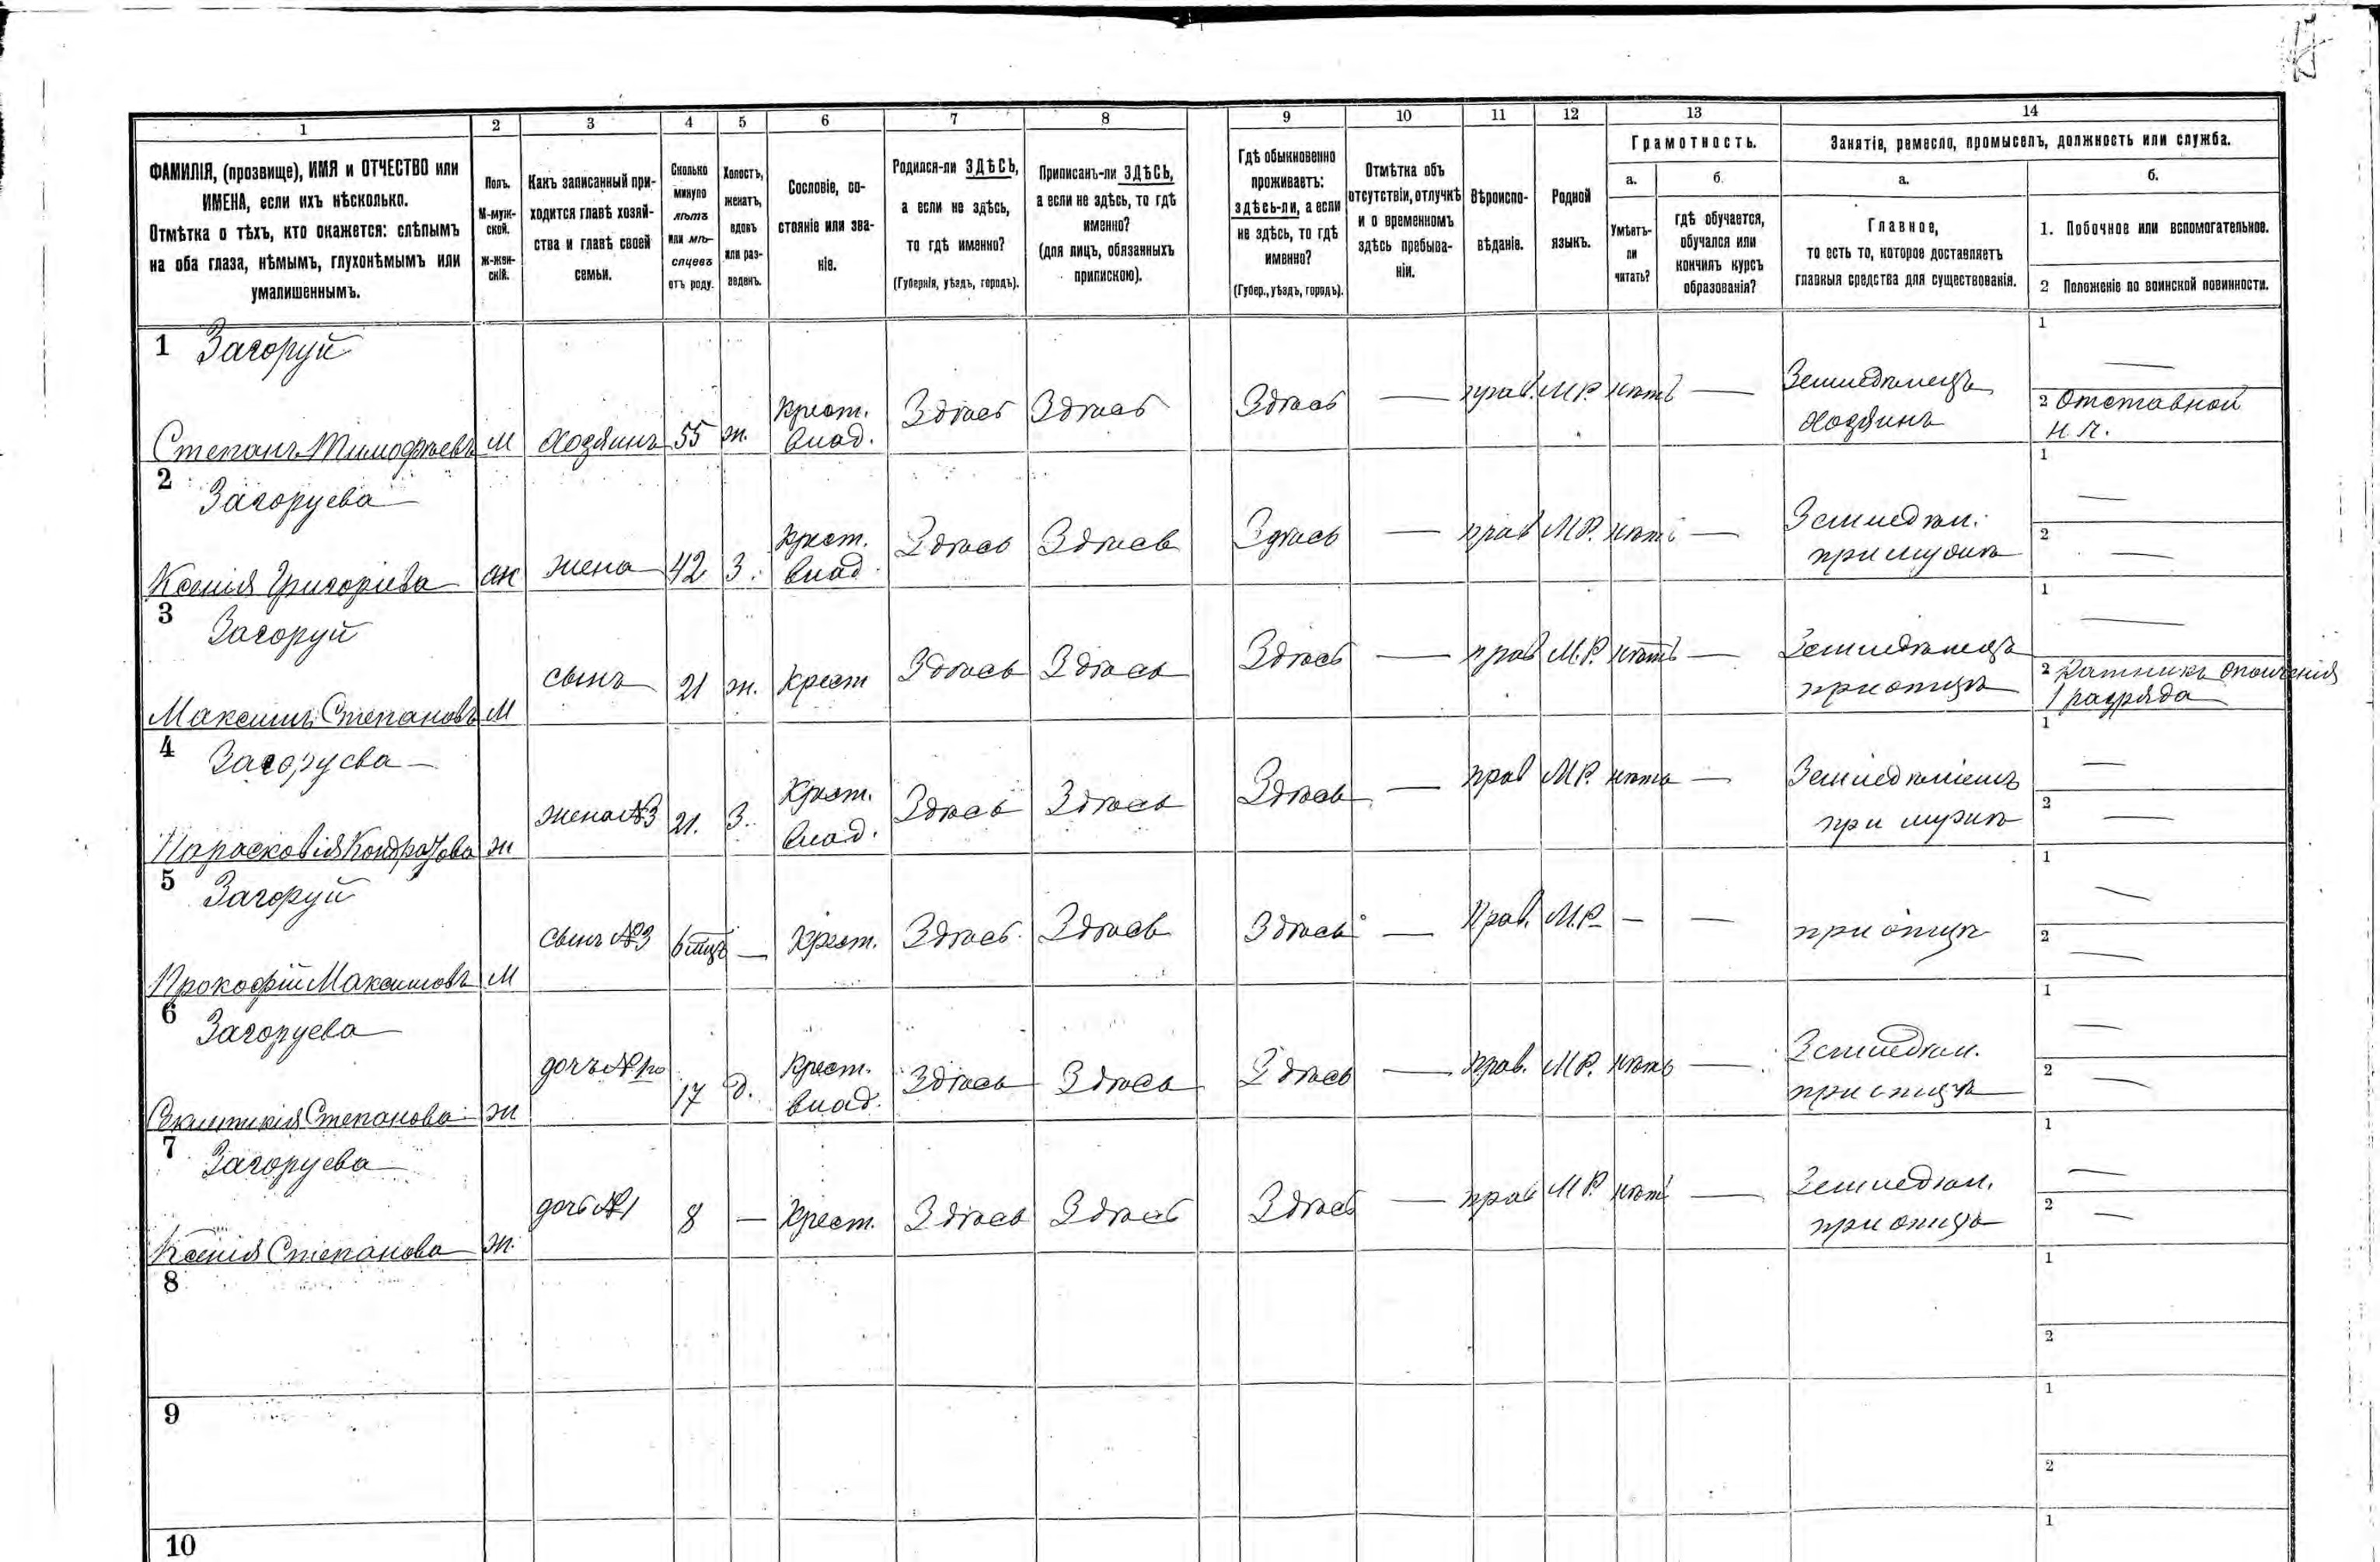 1 2 3 4 5 6 7 8 9 10 11 12 13 14
ФАМИЛІЯ, (прозвище), ИМЯ и ОТЧЕСТВО или
ИМЕНА, если ихъ нѣсколько.
Отмѣтка о тѣхъ, кто окажется: слѣпымъ
на оба глаза, нѣмымъ, глухонѣмымъ или
умалишеннымъ.
Полъ.
М-муж-
ской.
ж-жен-
скій.
Какъ записанный при-
ходится главѣ хозяй-
ства и главѣ своей
семьи.
Сколько
минуло
лѣтъ
или мѣ-
сяцевъ
отъ роду.
Холостъ,
женатъ,
вдовъ
или раз-
веденъ.
Сословіе, со-
стояніе или зва-
ніе.
Родился-ли ЗДѢСЬ,
а если не здѣсь,
то гдѣ именно?
(Губернія, уѣздъ, городъ).
Приписанъ-ли ЗДѢСЬ,
а если не здѣсь, то гдѣ
именно?
(для лицъ, обязанныхъ
припискою).
Гдѣ обыкновенно
проживаетъ:
здѣсь-ли, а если
не здѣсь, то гдѣ
именно?
(Губер., уѣздъ, городъ).
Отмѣтка объ
отсутствіи, отлучкѣ
и о временномъ
здѣсь пребыва-
ніи.
Вѣроиспо-
вѣданіе.
Родной
языкъ.
Грамотность.
а.
Умѣетъ-
ли
читать?
б.
гдѣ обучается,
обучался или
кончилъ курсъ
образованія?
Занятіе, ремесло, промыселъ, должность или служба.
а.
Главное,
то есть то, которое доставляетъ
главныя средства для существованія.
б.
1. Побочное или вспомогательное.
2 Положеніе по воинской повинности.
1 Загоруй
Степанъ Тимофѣевъ М Хозяинъ 55 ж. Крест. Здѣсь Здѣсь Здѣсь — прав. М.Р. нѣтъ — Земледѣлецъ 1 —
влад. Хозяинъ 2 Отставной
н. ч.
2 Загоруева
Ксенія Григорiева ж жена 42 З. Крест. Здѣсь Здѣсь Здѣсь — прав М.Р. нѣтъ — Земледѣл. 1 —
влад. при мужѣ 2 —
3 Загоруй
Максимъ Степановъ М сынъ 21 ж. Крест Здѣсь Здѣсь Здѣсь — прав М.Р. нѣтъ — Земледѣлецъ 1 —
при отцѣ 2 Ратникъ ополченія
1 разряда
4 Загоруева
Парасковія Кондратова ж жена №3 21. З. Крест. Здѣсь Здѣсь Здѣсь — прав М.Р. нѣтъ — 1 —
влад. при мужѣ 2 —
5 Загоруй
Прокофій Максимовъ М сынъ №3 6 мцъ — Крест. Здѣсь Здѣсь Здѣсь — Прав. М.Р. — — при отцѣ 1 —
2 —
6 Загоруева
Степанова ж дочь №1го 17 д. Крест. Здѣсь Здѣсь Здѣсь — прав. М.Р. нѣтъ — Земледѣл. 1 —
влад. при отцѣ 2 —
7 Загоруева
Ксенія Степанова ж. дочь №1 8 — Крест. Здѣсь Здѣсь Здѣсь — прав М.Р. нѣтъ — Земледѣл. 1 —
при отцѣ 2 —
8 1
2
9 1
2
10 1